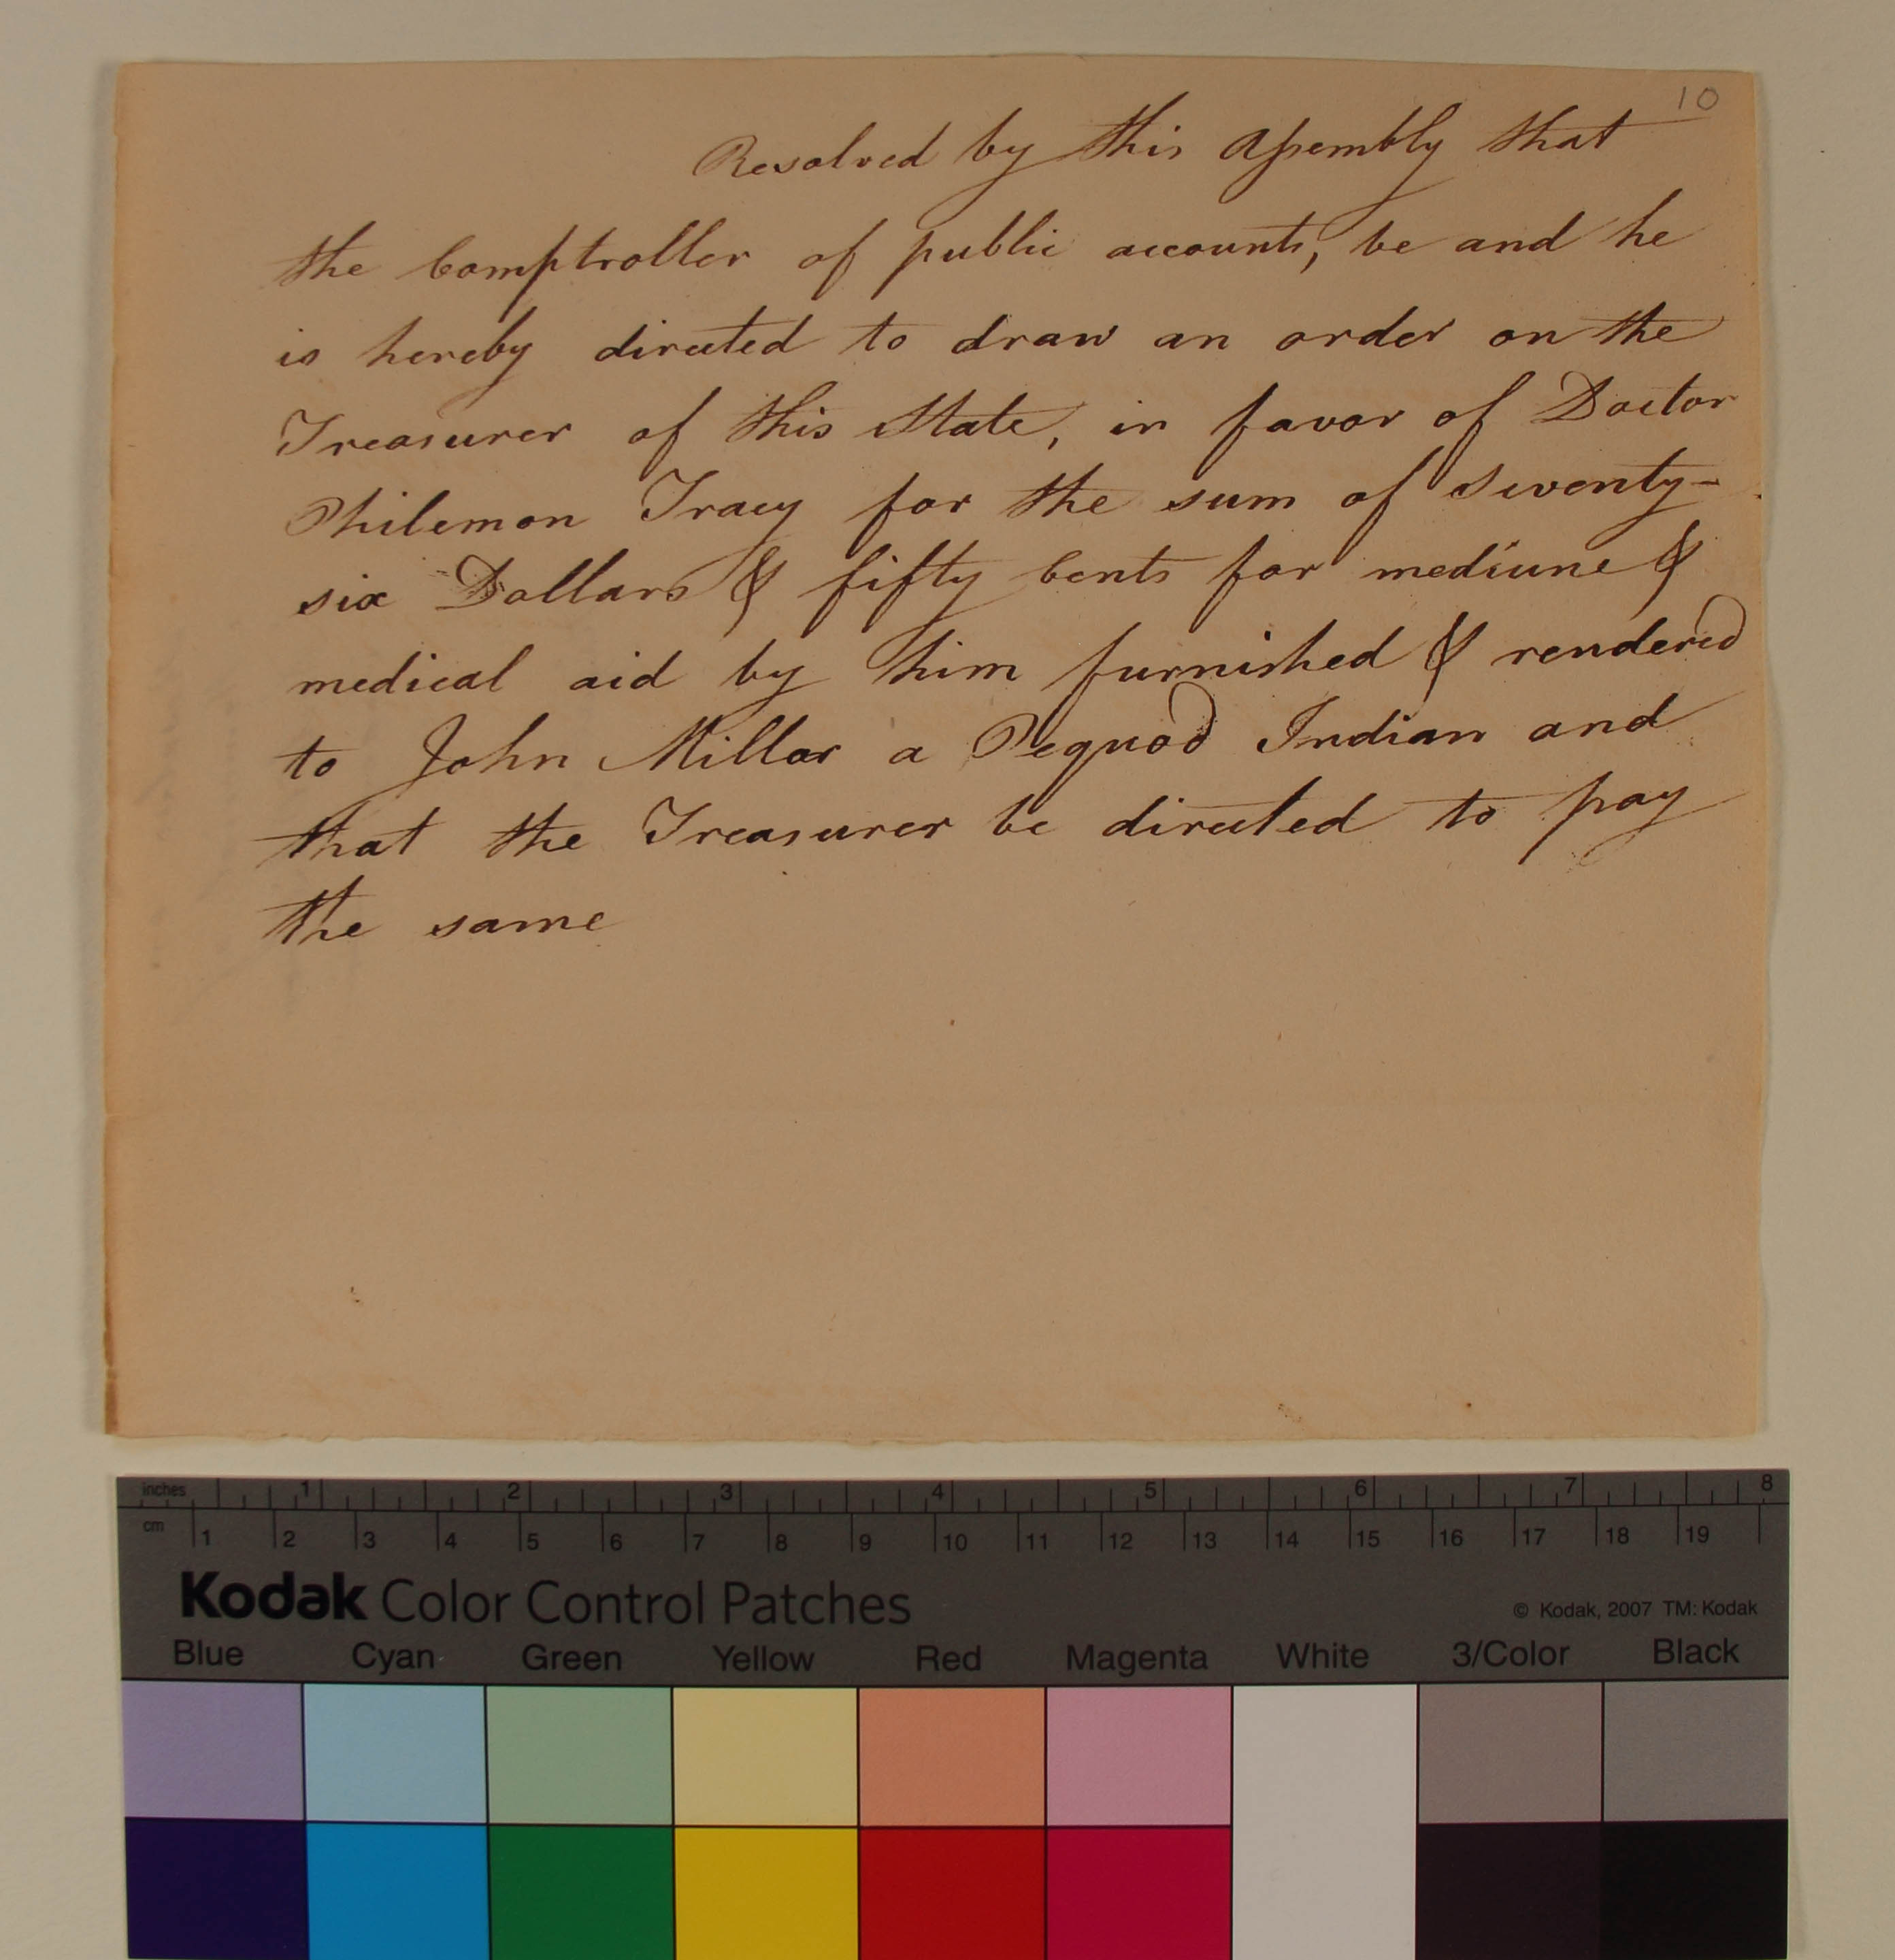 10
Resolved by this Assembly that
the Comptroller of public accounts, be and he
is hereby directed to draw an order on the
Treasurer of this State, in favor of Doctor
Philemon Tracy for the sum of seventy-
six Dollars & fifty Cents for medicine &
medical aid by him furnished & rendered
to John Millar a Pequod Indian and
that the Treasurer be directed to pay
the same
inches 1 2 3 4 5 6 7 8
cm 1 2 3 4 5 6 7 8 9 10 11 12 13 14 15 16 17 18 19
Kodak Color Control Patches
© Kodak, 2007 TM: Kodak
Blue Cyan Green Yellow Red Magenta White 3/Color Black